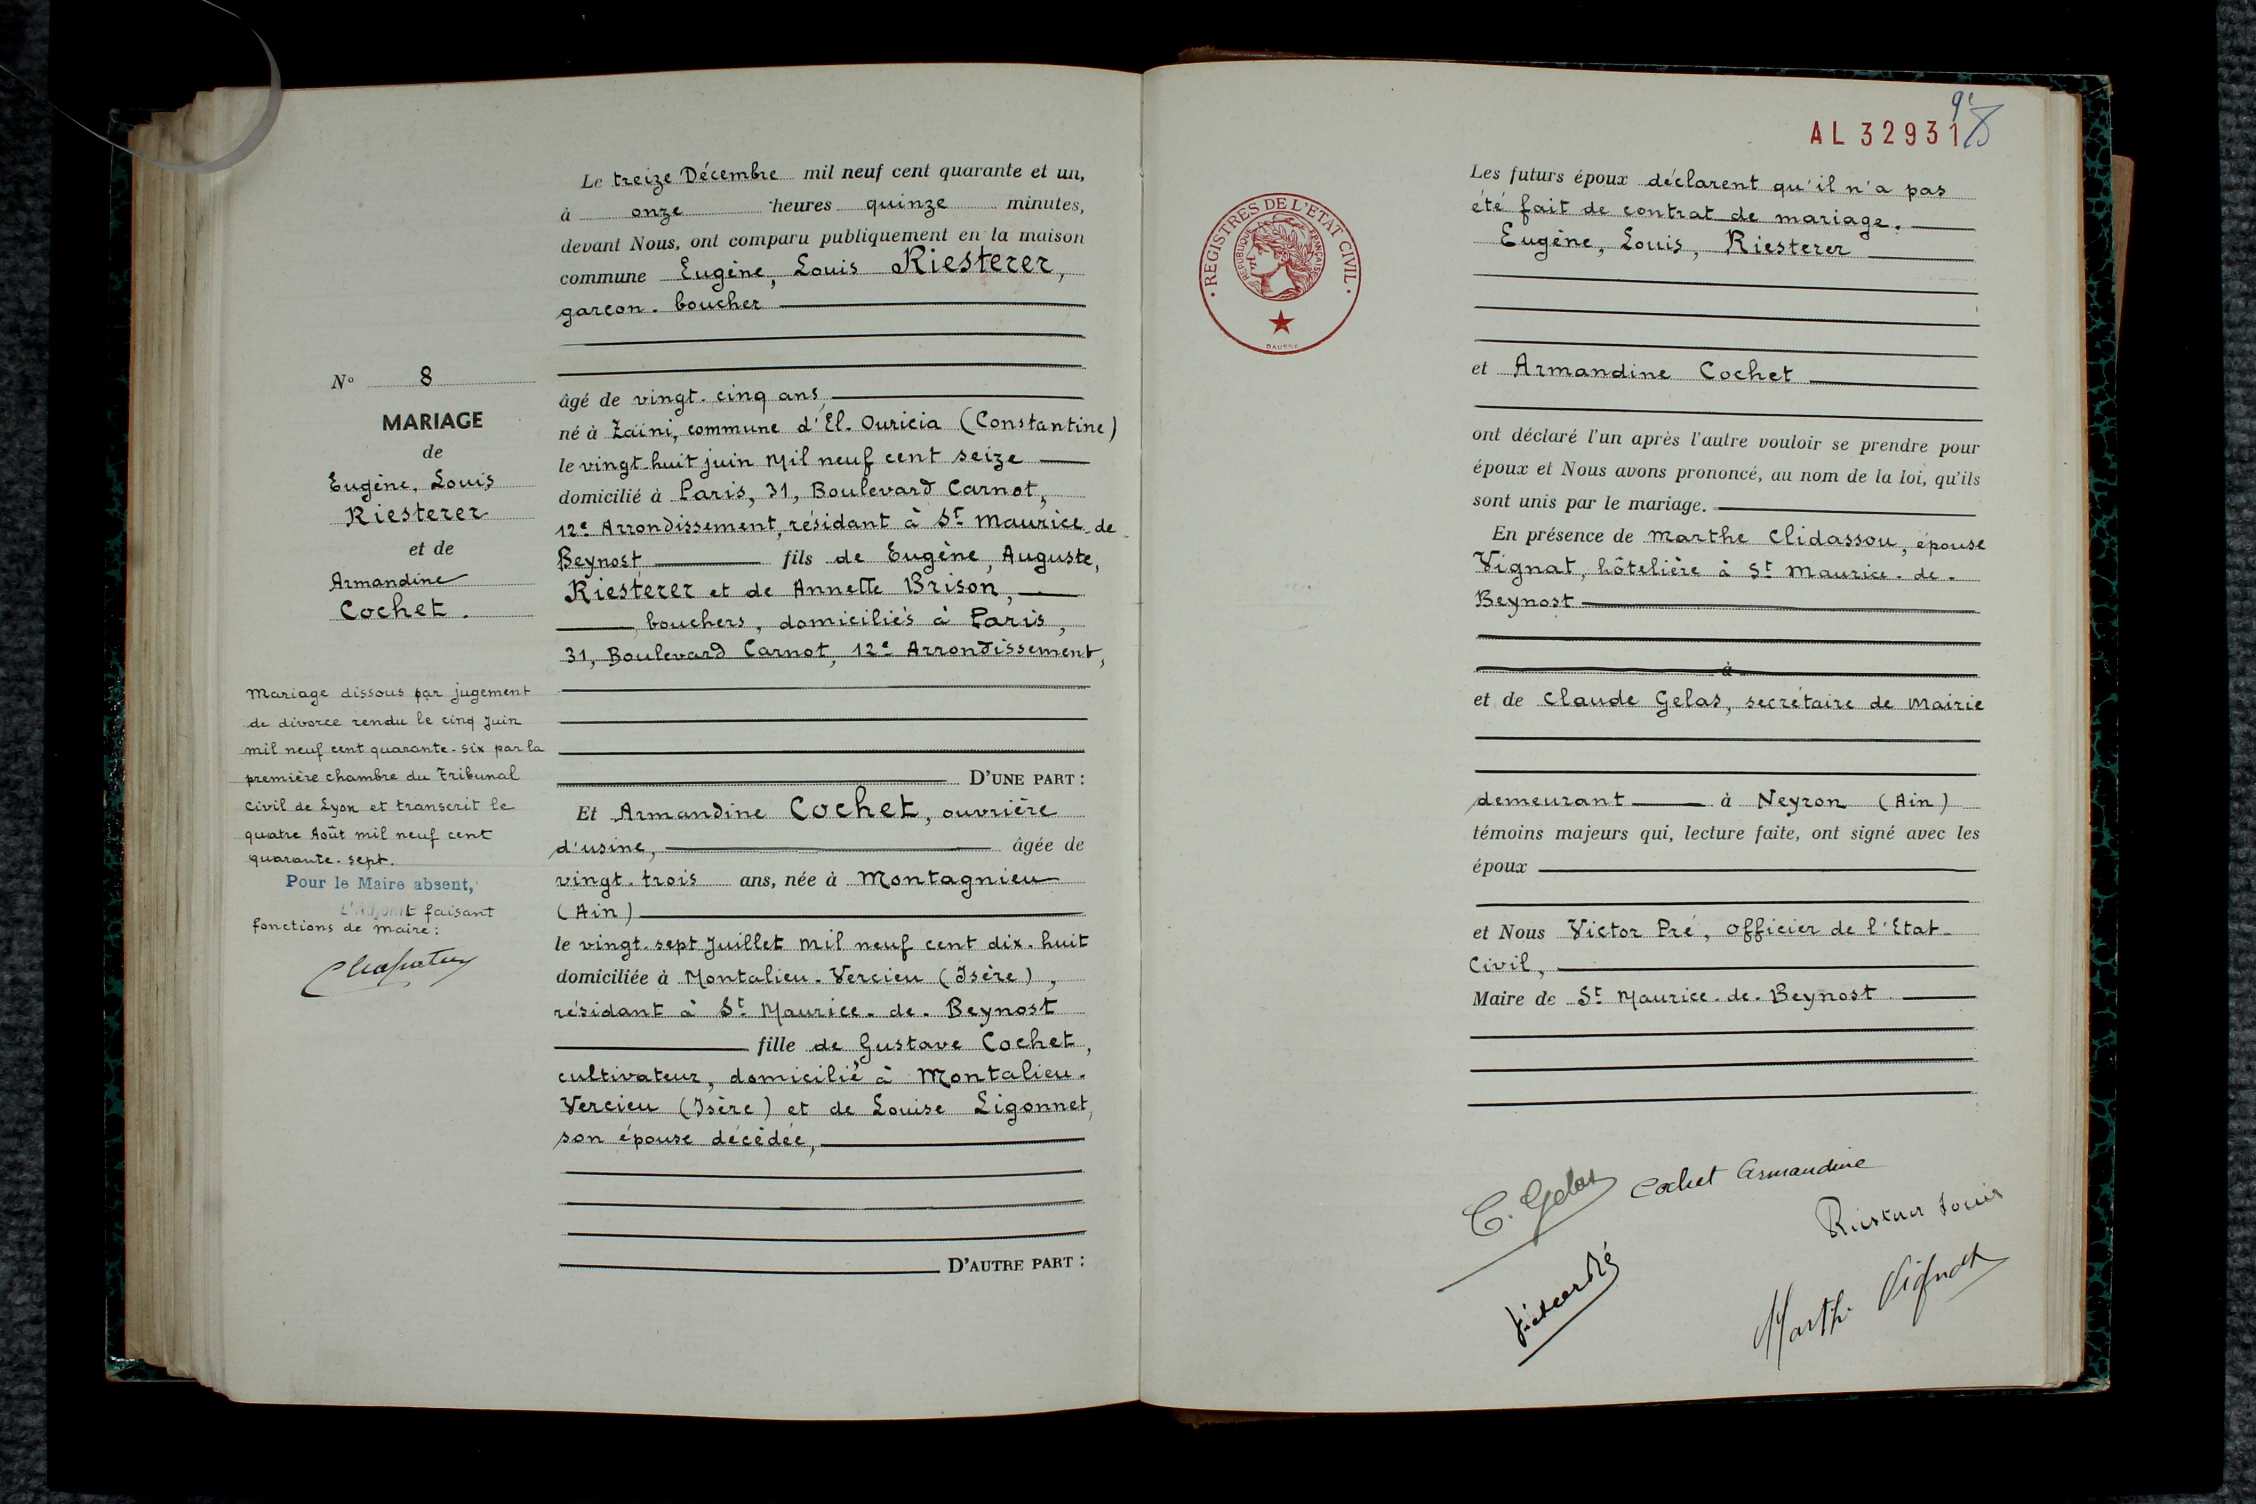 Le treize Décembre mil neuf cent quarante et un,
à onze heures quinze minutes,
devant Nous, ont comparu publiquement en la maison
commune Eugène, Louis Riesterer,
garçon. boucher
N° 8
MARIAGE
de
Eugène, Louis
Riesterer
et de
Armandine
Cochet.
âgé de vingt. cinq ans,
né à Zaïni, commune d'El. Ouricia (Constantine)
le vingt-huit juin mil neuf cent seize
domicilié à Paris, 31, Boulevard Carnot,
12e Arrondissement, résidant à St Maurice. de.
Beynost, fils de Eugène, Auguste,
Riesterer et de Annette Brison,
bouchers, domiciliés à Paris,
31, Boulevard Carnot, 12e Arrondissement,
Mariage dissous par jugement
de divorce rendu le cinq Juin
mil neuf cent quarante-six par la
première chambre du Tribunal
Civil de Lyon et transcrit le
quatre Août mil neuf cent
quarante-sept.
Pour le Maire absent,
L'Adjoint faisant
fonctions de maire:
D'UNE PART :
Et Armandine Cochet, ouvrière
d'usine, âgée de
vingt. trois ans, née à Montagnieu
(Ain)
le vingt. sept Juillet mil neuf cent dix. huit
domiciliée à Montalieu. Vercieu (Isère),
résidant à St Maurice. de. Beynost
fille de Gustave Cochet,
cultivateur, domicilié à Montalieu.
Vercieu (Isère) et de Louise Ligonnet,
son épouse décédée,
D'AUTRE PART :
AL 32931
REGISTRES DE L'ETAT CIVIL
REPUBLIQUE FRANÇAISE
Les futurs époux déclarent qu'il n'a pas
été fait de contrat de mariage.
Eugène, Louis, Riesterer
et Armandine Cochet
ont déclaré l'un après l'autre vouloir se prendre pour
époux et Nous avons prononcé, au nom de la loi, qu'ils
sont unis par le mariage.
En présence de Marthe Clidassou, épouse
Vignat, hôtelière à St Maurice. de.
Beynost
à
et de Claude Gelas, secrétaire de Mairie
demeurant à Neyron (Ain)
témoins majeurs qui, lecture faite, ont signé avec les
époux
et Nous Victor Pré, Officier de l'Etat-
Civil,
Maire de St Maurice. de. Beynost
C. Gelas
Cochet Armandine
Riesterer Louis
Victor Pré
Marthe Vignat